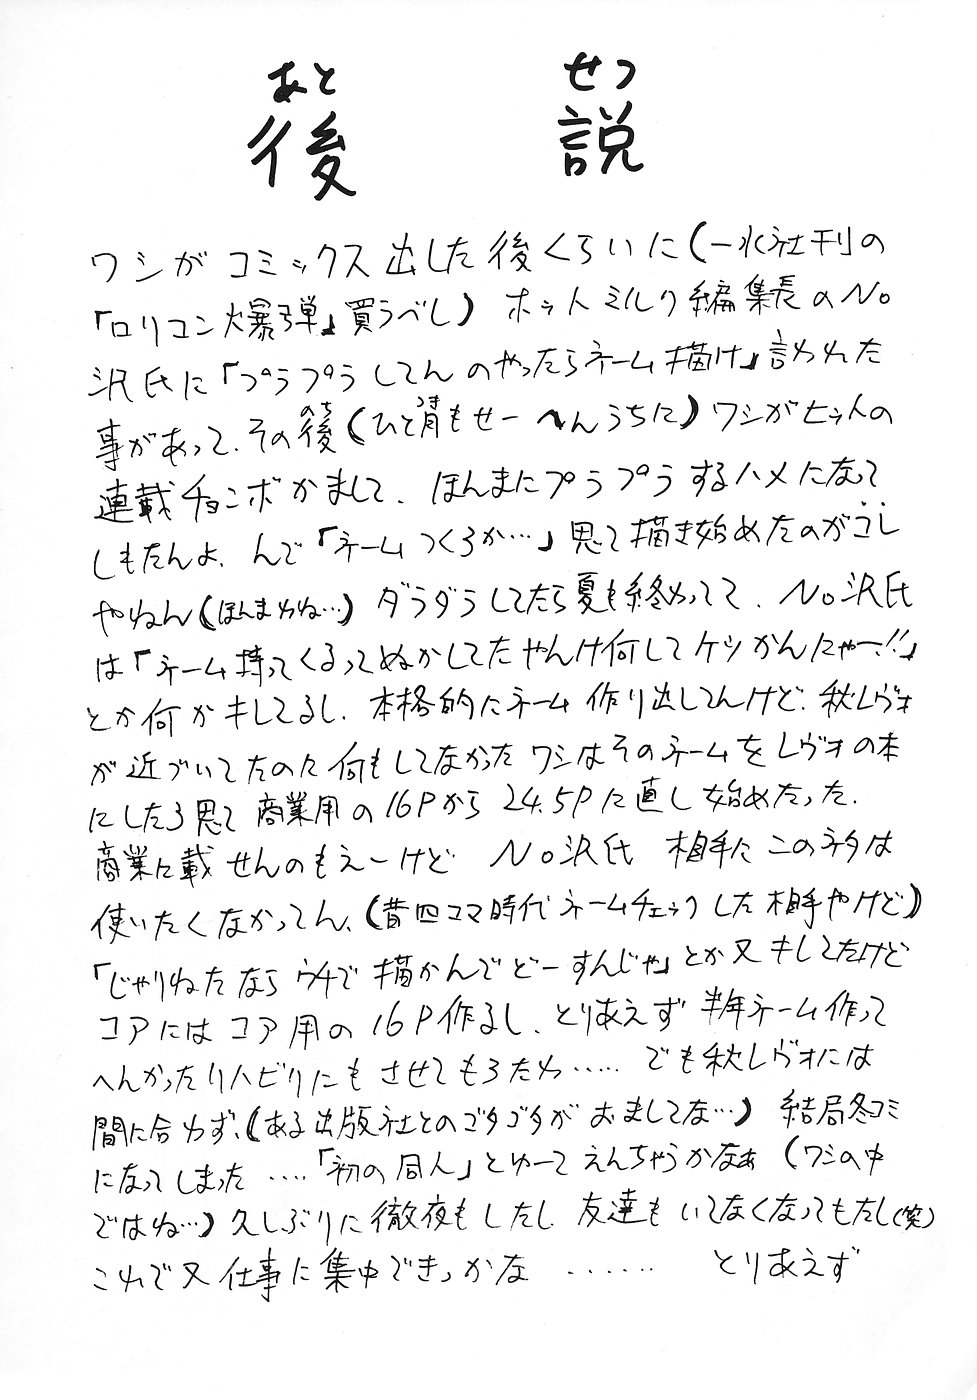 あと せつ
後 説
ワシがコミックス出した後くらいに(一水社刊の
「ロリコン爆弾」買うべし) ホットミルク編集長のNo
沢氏に「プラプラしてんのやったらネーム描け」言われた
事があって、その後(のち)(ひと月(つき)もせーへんうちに)ワシがヒットの
連載チョンボかまして、ほんまにプラプラするハメになって
しもたんよ、んで「ネームつくろか…」思て描き始めたのがコレ
やねん(ほんまかね…) ダラダラしてたら夏も終わってて、No沢氏
は「ネーム持ってくるってぬかしてたやんけ何してケツかんにゃー!!」
とか何かキしてるし、本格的にネーム作り出してんけど、秋レヴォ
が近づいてたのに何もしてなかったワシはそのネームをレヴォの本
にしたろ思て商業用の16Pから24.5Pに直し始めたった.
商業に載せんのもえーけど No沢氏 相手にこのネタは
使いたくなかってん、(昔四コマ時代ネームチェックした相手やけど)
「じゃりねたならウチで描かんでどーすんじゃ」とか又キしてたけど
コアにはコア用の16P作るし、とりあえず半年ネーム作って
へんかったリハビリにもさせてもろたわ…… でも秋レヴォには
間に合わず、(ある出版社とのゴタゴタがおましてな…) 結局冬コミ
になってしまった ….「初の同人」とゆーてえんちゃうかなぁ (ワシの中
ではね…) 久しぶりに徹夜もしたし、友達もいてなくなってもたし(笑)
これで又仕事に集中できっかな …… とりあえず